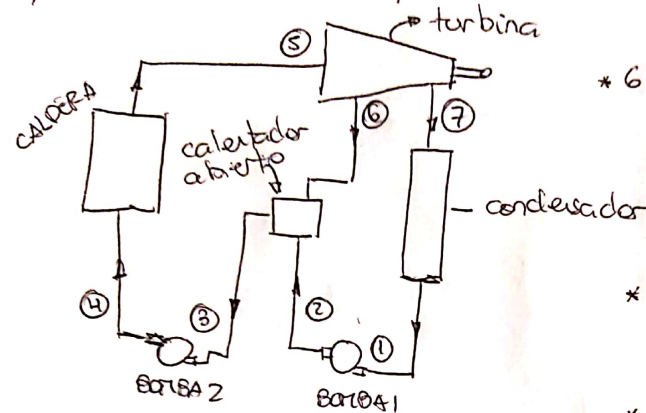 turbina
⑤
* 6
CALDERA
⑥
⑦
calentador
abierto
condensador
*
④
③
②
①
BOMBA 2
BOMBA 1